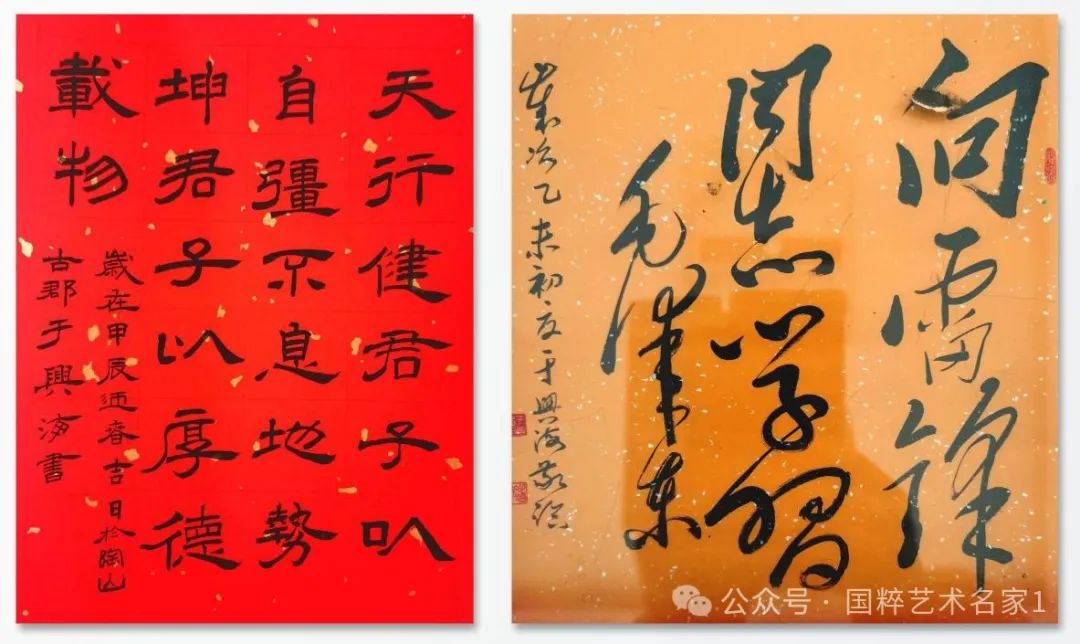 天行健君子以
自彊不息地勢
坤君子以厚德
載物
歲在甲辰迎春吉日於陶山
古郡于興海書
向雷鋒
同志学習
毛泽東
歲次乙未初夏于興海敬临
公众号 · 国粹艺术名家1